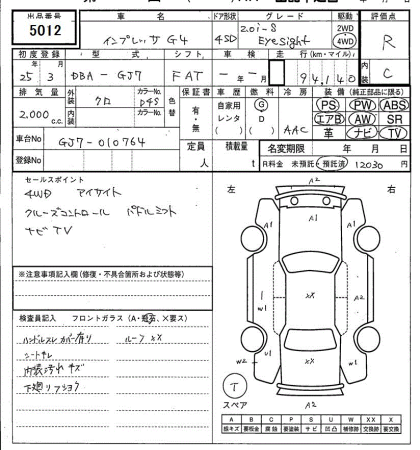 出品番号 車名 ドア形状 グレード 駆動 評価点
5012 インプレッサ G4 4SD 2.0i-S EyeSight 2WD 4WD R
初度登録 型式 シフト 車検 走行(km・マイル) 内装
25年3月 DBA-GJ7 FAT -年 月 94,140 C
排気量 外装 カラーNo. 色替 保証書 車歴 燃料 冷房 装備(純正部品に限る)
2,000c.c. クロ D4S 有・無 自家用 レンタ G D AAC PS PW ABS
内装 カラーNo. エアB AW SR
革 ナビ TV
車台No GJ7-010764 定員 人 積載量 t 名変期限 年 月 日
登録No R料金 未預託 預託済 12030 円
セールスポイント
4WD アイサイト
クルーズコントロール パドルシフト
ナビ TV
※注意事項記入欄(修復・不具合箇所および状態等)
検査員記入 フロントガラス(A・飛石、×要ス)
ハンドルスレ カバー有り ルーフ XX
シートキレ
内装汚れ キズ
下廻りフショク
左 右
A2
A1 A1 A1
W1 XX A2
W2 U1 A1
T
スペア A2
A B C P S U W XX X
線キズ 要板金 腐蝕 要塗装 サビ 凹凸 補修跡 交換跡 要交換